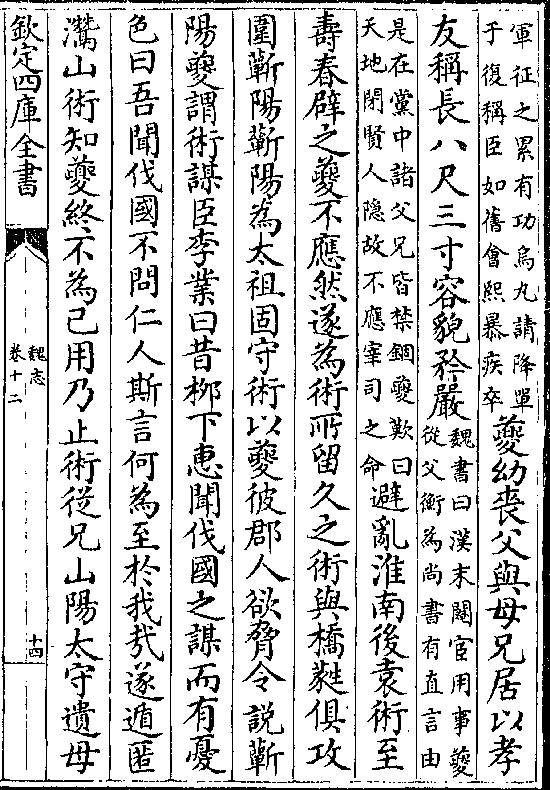 軍征之累有功烏丸請降單
于復稱臣如舊會熙暴疾卒
夔幼喪父與母兄居以孝
友稱長八尺三寸容貌矜嚴
魏書曰漢末閹宦用事夔
從父衡為尚書有直言由
是在黨中諸父兄皆禁錮夔歎曰
天地閉賢人隐故不應宰司之命
避亂淮南後袁術至
壽春辟之夔不應然遂為術所留久之術與橋蕤俱攻
圍蘄陽蘄陽為太祖固守術以夔彼郡人欲脅令說蘄
陽夔謂術謀臣李業曰昔栁下恵聞伐國之謀而有憂
色曰吾聞伐國不問仁人斯言何為至於我㢤遂遁匿
灊山術知夔終不為己用乃止術從兄山陽太守遺母
欽定四庫全書
魏志
卷十二
十四